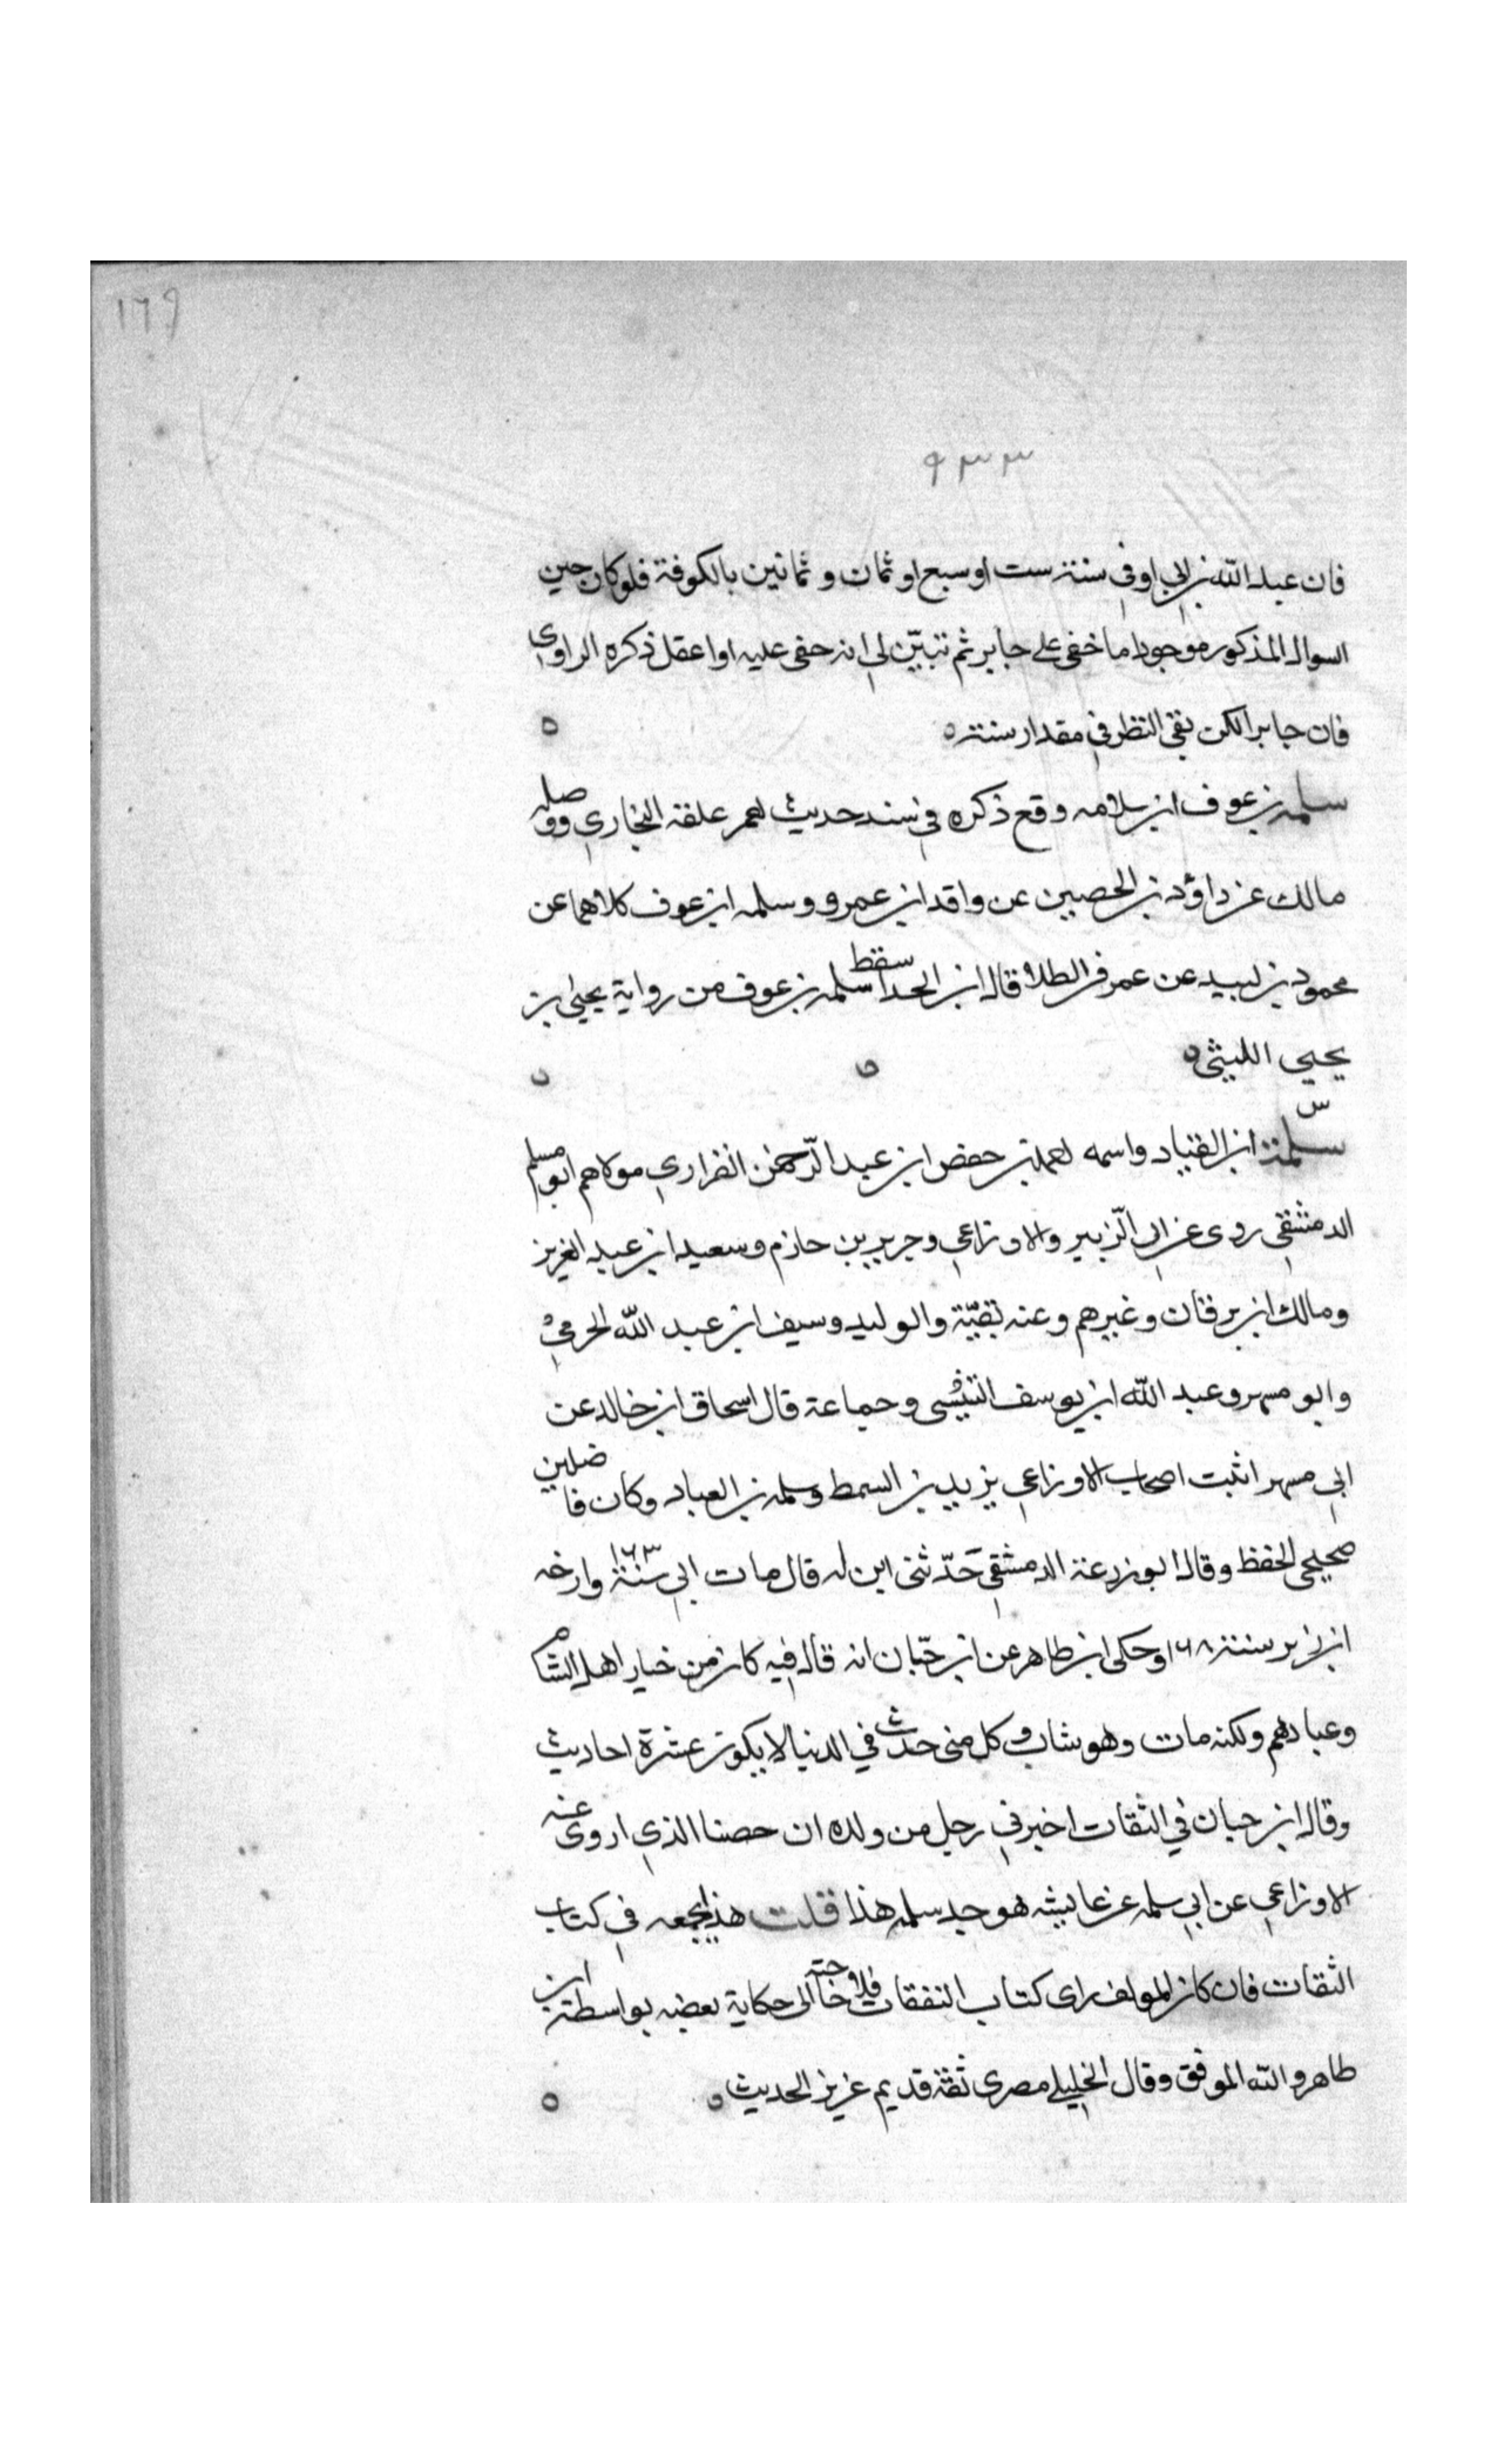 ١٦٩
٩٣٣
فان عبد الله بن ابي اوفى سنة ست او سبع او ثمان و ثمانين بالكوفة فلو كان حين
السوال المذكور موجودا ما خفي على جابر ثم تبيّن لي انه خفى عليه او اعقل ذكره الراوي
فان جابرا لكن بقي النظر في مقدار سنته
سلمة بن عوف ابن سلامه وقع ذكره في سند حديث لعمر علقه البخاري ووصله
مالك عن داؤد بن الحصين عن واقد ابن عمرو و سلمه ابن عوف كلاهما عن
محمود بن لبيد عن عمر في الطلا قال ابن الحذا سقط سلمه بن عوف من رواية يحيى بن
يحيي الليثي
س
سلمة ابن القياد واسمه حفص ابن عبد الرّحمن الفزاري مولاهم ابو مسلم
الدمشقي روى عن ابي الزّبير والاوزاعي وجرير بن حازم وسعيد ابن عبد العزيز
ومالك ابن برقان وغيرهم وعنه بقيّة والوليد وسيف ابن عبد الله الجرمي
وابو مسهر وعبد الله ابن يوسف التنيسى وجماعة قال اسحاق ابن خالد عن
ابي مسهر اثبت اصحاب الاوزاعي يزيد بن السمط وسلمه بن العباد وكان فاضلين
صحيحي الحفظ وقال ابو زرعة الدمشقي حَدّثنى ابن له قال مات ابي سنة ١٦٣ وارخه
ابن زبر سنة ١٦٨ وحكى ابن طاهر عن ابن حبّان انه قال فيه كان من خيار اهل الشام
وعبادهم ولكنه مات وهو شاب وكل شى حدث في الدنيا لا يكون عشرة احاديث
وقال ابن حبان في الثقات اخبرني رجل من ولده ان حصنا الذي اروى عنه
الاوزاعي عن ابي سلمه عن عايشه هو جد سلمه هذا قلت هذا جمعه في كتاب
الثقات فان كان المولف راى كتاب الثقات فلا حاجة الى حكاية بعضه بواسطة ابن
طاهر والله الموفق وقال الخليلي مصري ثقة قديم عزيز الحديث